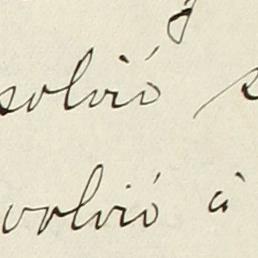 solvió s
volvió á